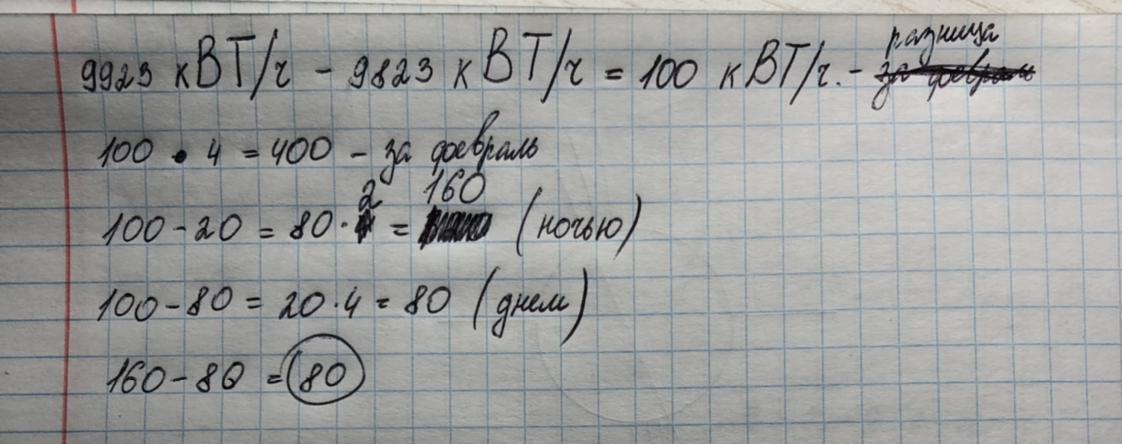 9923 кВТ/ч - 9823 кВТ/ч = 100 кВТ/ч. - разница
100 • 4 = 400 - за февраль
100 - 20 = 80 · 2 = 160 (ночью)
100 - 80 = 20 · 4 = 80 (днем)
160 - 80 = 80